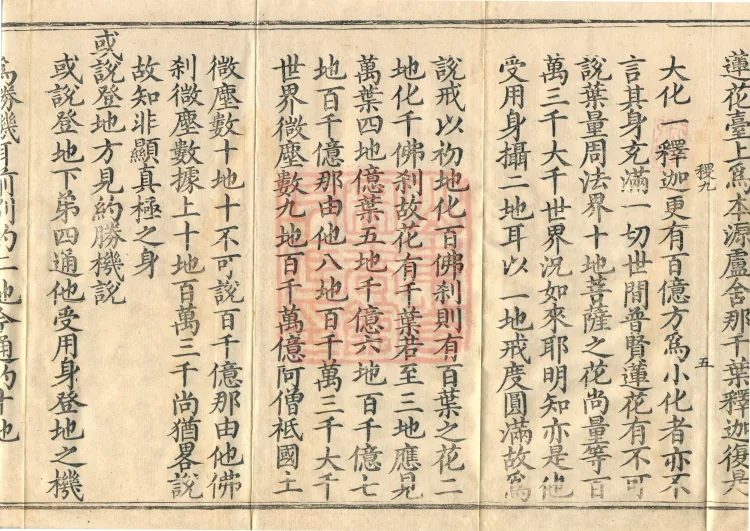 蓮花臺上爲本源盧舍那千葉釋迦復是
大化一釋迦更有百億方爲小化者亦不
稷九
五
言其身充滿一切世間普賢蓮花有不可
說葉量周法界十地菩薩之花尚量等百
萬三千大千世界況如來耶明知亦是他
受用身攝二地耳以一地戒度圓滿故爲
說戒以初地化百佛刹則有百葉之花二
地化千佛刹故花有千葉若至三地應見
萬葉四地億葉五地千億六地百千億七
地百千億那由他八地百千萬三千大千
世界微塵數九地百千萬億阿僧祇國土
微塵數十地十不可說百千億那由他佛
刹微塵數據上十地百萬三千尚猶畧說
故知非顯真極之身
或說登地方見約勝機說
或說登地下弟四通他受用身登地之機
爲勝機耳前別約二地今通約十地